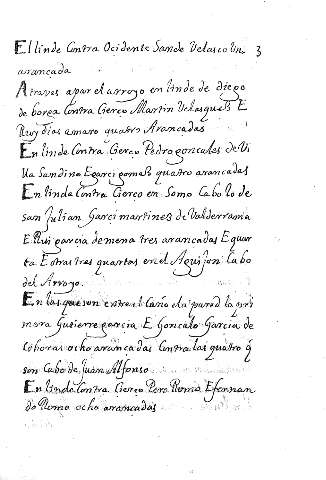 El linde Contra Ocidente Sande Velasco Un 3
arancada
Atraves apar el arroyo en linde de diego
de borça Contra Çierço Martin Velasques E
Ruy dias amaro quatro Arancadas
En linde Contra Çierço Pedro gonçales de Vi
lla Sandino Egarci gomes quatro arancadas
En linde Contra Çierço en Somo Cabo lo de
san Julian Garci martines de Valderrama
E Rui garcia de mena tres arancadas E quar
ta E otras tres quartas en el Cabo
del Arroyo.
En las que son entre el Caño e la pared la pri
mera Gutierre garcia E Gonçalo Garcia de
Coboras ocho arancadas Contra las quatro q
son Cabo de Juan Alfonso
En linde Contra Çierço Pero Romo E fernan
do Romo ocho arancadas